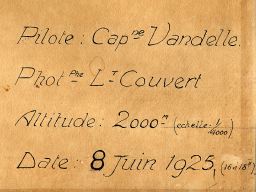 Pilote: Cap^ne Vandelle.
Phot^phe L^t Couvert
Altitude: 2000^m (echelle: 1/4000)
Date: 8 Juin 1925, (16h18^m)